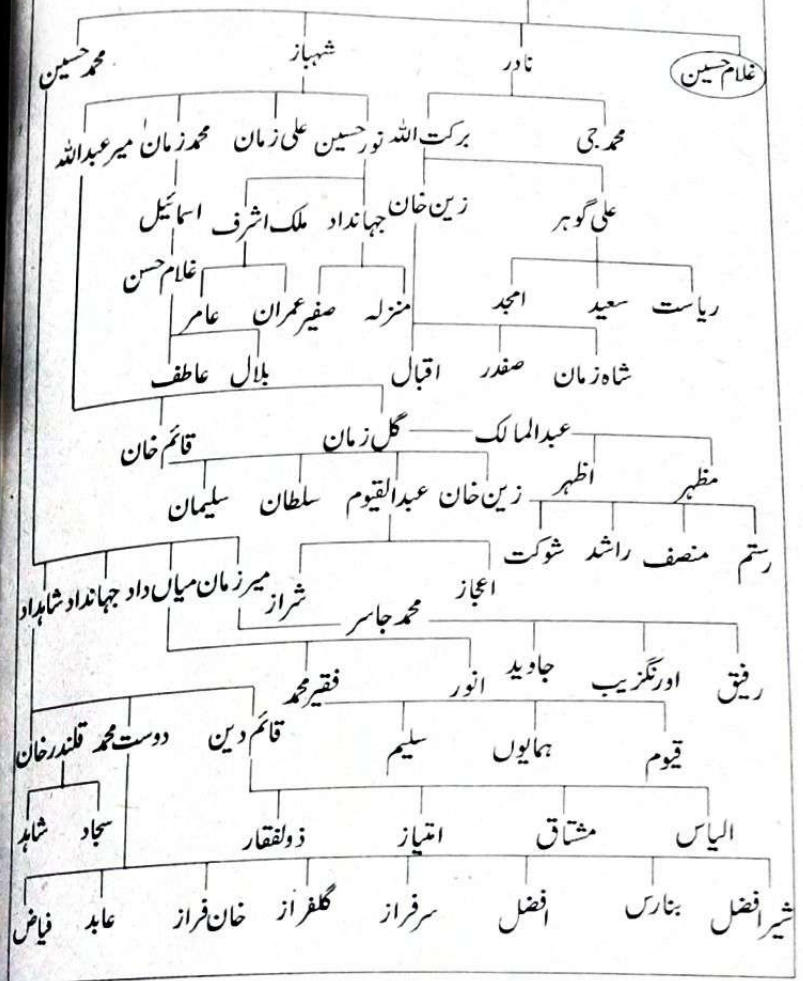 غلام حسین نادر شہباز محمد حسین
محمد جی برکت اللہ نور حسین علی زمان محمد زمان میر عبداللہ
علی گوہر زین خان جہانداد ملک اشرف اسمائیل
غلام حسن
ریاست سعید امجد منزلہ صفیر عمران عامر
شاہ زمان صفدر اقبال بلال عاطف
عبدالمالک گل زمان قائم خان
مظہر اظہر
زین خان عبدالقیوم سلطان سلیمان
رستم منصف راشد شوکت
اعجاز شراز میر زمان میاں داد جہانداد شاہداد
محمد جاسر
رفیق اورنگزیب جاوید انور فقیر محمد
قیوم ہمایوں سلیم قائم دین دوست محمد قلندر خان
الیاس مشتاق امتیاز ذولفقار سجاد شاہد
شیر افضل بنارس افضل سرفراز گلفراز خان فراز عابد فیاض